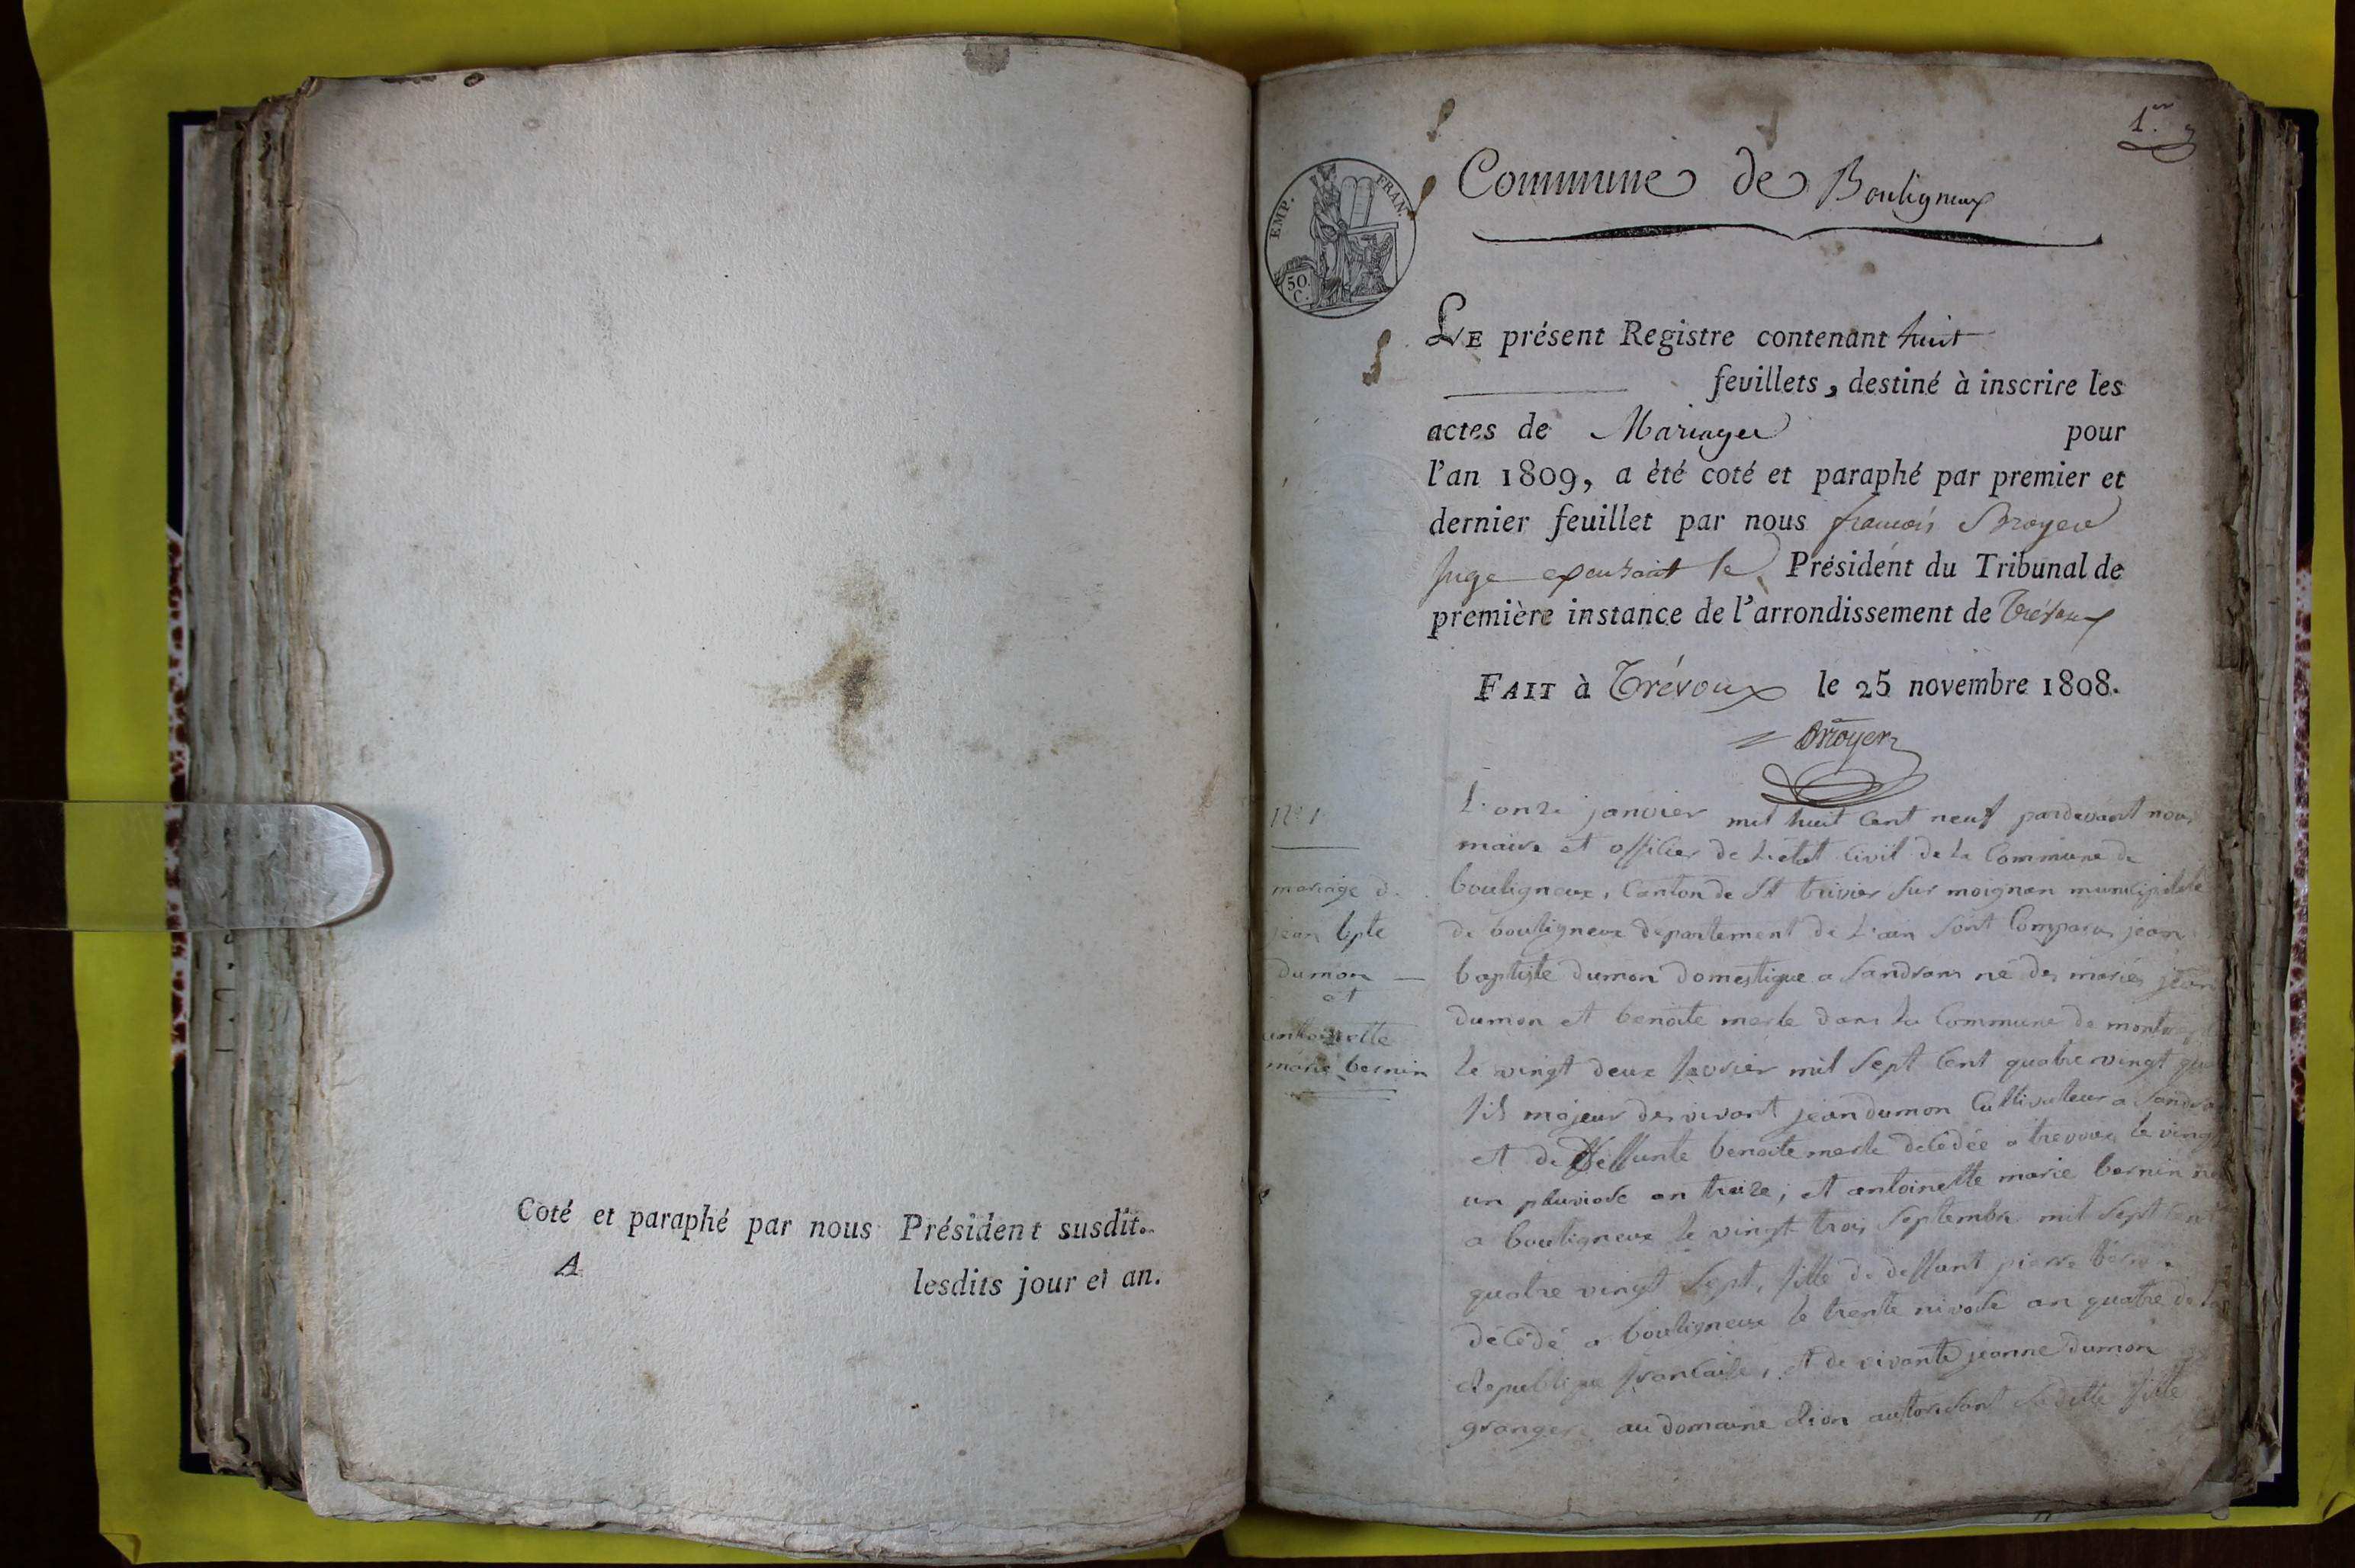 Coté et paraphé par nous Président susdit.
A lesdits jour et an.
1.er
EMP. FRAN.
50 C.
Commune de Bouligneux
LE présent Registre contenant huit
feuillets, destiné à inscrire les
actes de Mariages pour
l'an 1809, a été coté et paraphé par premier et
dernier feuillet par nous françois Broyer
Juge exerçant le Président du Tribunal de
première instance de l'arrondissement de Trévoux
FAIT à Trévoux le 25 novembre 1808.
Broyer
N° 1
mariage d
jean bpte
dumon
et
antoinette
marie bernin
L'onze janvier mil huit cent neuf pardevant nous
maire et officier de L'etat Civil de La Commune de
bouligneux, Canton de St trivier Sur moignan municipalité
de bouligneux département de L'ain Sont Comparus jean
baptiste dumon domestique a Sandrans né des mariés jean
dumon et benoite merle dans La Commune de
le vingt deux fevrier mil Sept Cent quatre vingt
fils majeur de vivant jean dumon Cultivateur a
et de deffunte benoite merle decédée a trevoux le vingt
un pluviose an treize, et antoinette marie bernin
a bouligneux le vingt trois Septembre mil Sept Cent
quatre vingt Sept, fille de deffunt pierre
décédé a bouligneux le trente nivose an quatre de la
Republique francaise, et de vivante jeanne dumon
au domaine autorisant Sadite fille